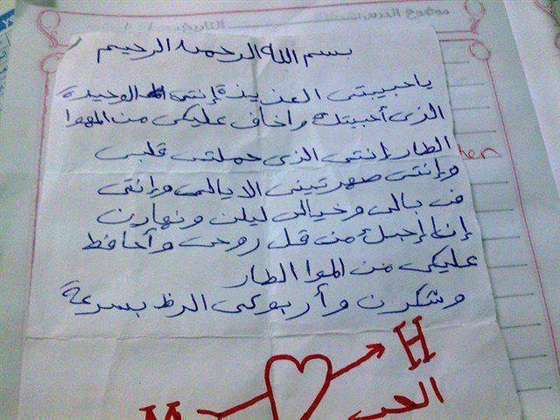 بسم الله الرحمن الرحيم
ياحبيبتى العزيزة إنتى الوحيدة
الذى أحبيتك واخاف عليكى من الهوا
الطار إنتى الذى حملتى قلبى
وإنتى صهرتينى الايالى وإنتى
فى بالى وخيالى ليلن ونهارن
إنا إحبك من كل روحى وأحافظ
عليكى من الهوا الطار
وشكرن وأرجوكى الرظ بسرعة
H
الحب
M